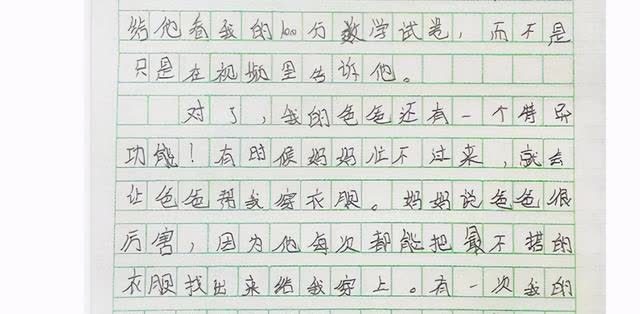 给他看我的100行数学试卷，而不是
只是在视频里告诉他。
对了，我的爸爸还有一个特异
功能！有时候妈妈忙不过来，就会
让爸爸帮我穿衣服。妈妈说爸爸很
厉害，因为他每次都能把最不搭的
衣服找出来给我穿上。有一次我的